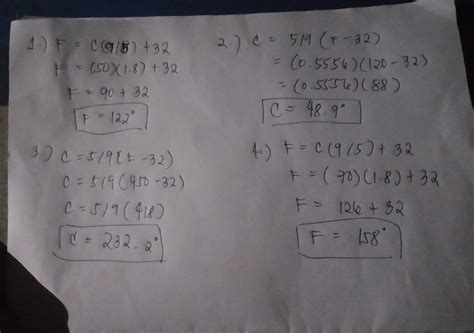 1.) F = C(9/5) + 32
F = (50)(1.8) + 32
F = 90 + 32
F = 122°
2.) C = 5/9 (F - 32)
= (0.5556)(120 - 32)
= (0.5556)(88)
C = 48.9°
3.) C = 5/9 (F - 32)
C = 5/9 (450 - 32)
C = 5/9 (418)
C = 232.2°
4.) F = C(9/5) + 32
F = (70)(1.8) + 32
F = 126 + 32
F = 158°